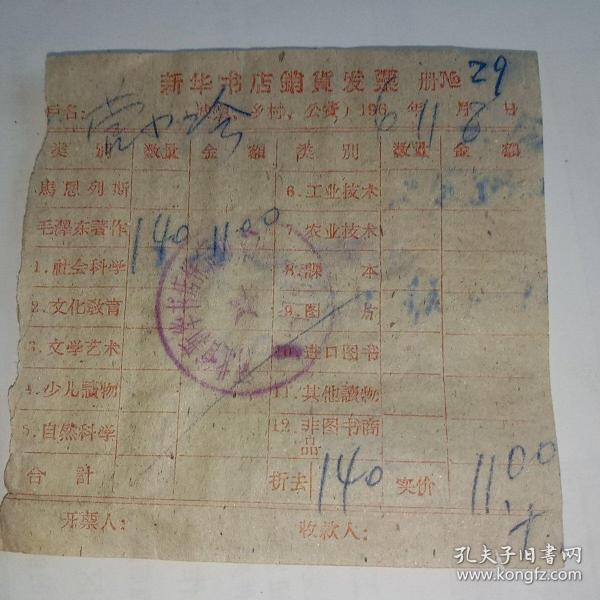 新华书店銷貨发票 册№ 29
戶名: 乡村、公費) 1966年11月8日
类别 数量 金額 类别 数量 金額
馬恩列斯 6.工业技术
毛澤东著作 140 1100 7.农业技术
1.社会科学 8.課本
2.文化敎育 9.图片
3.文学艺术 10.进口图书
4.少儿讀物 11.其他讀物
5.自然科学 12.非图书商品
合計 折去 140 实价 1100
开票人: 收款人:
孔夫子旧书网
www.kongfz.com